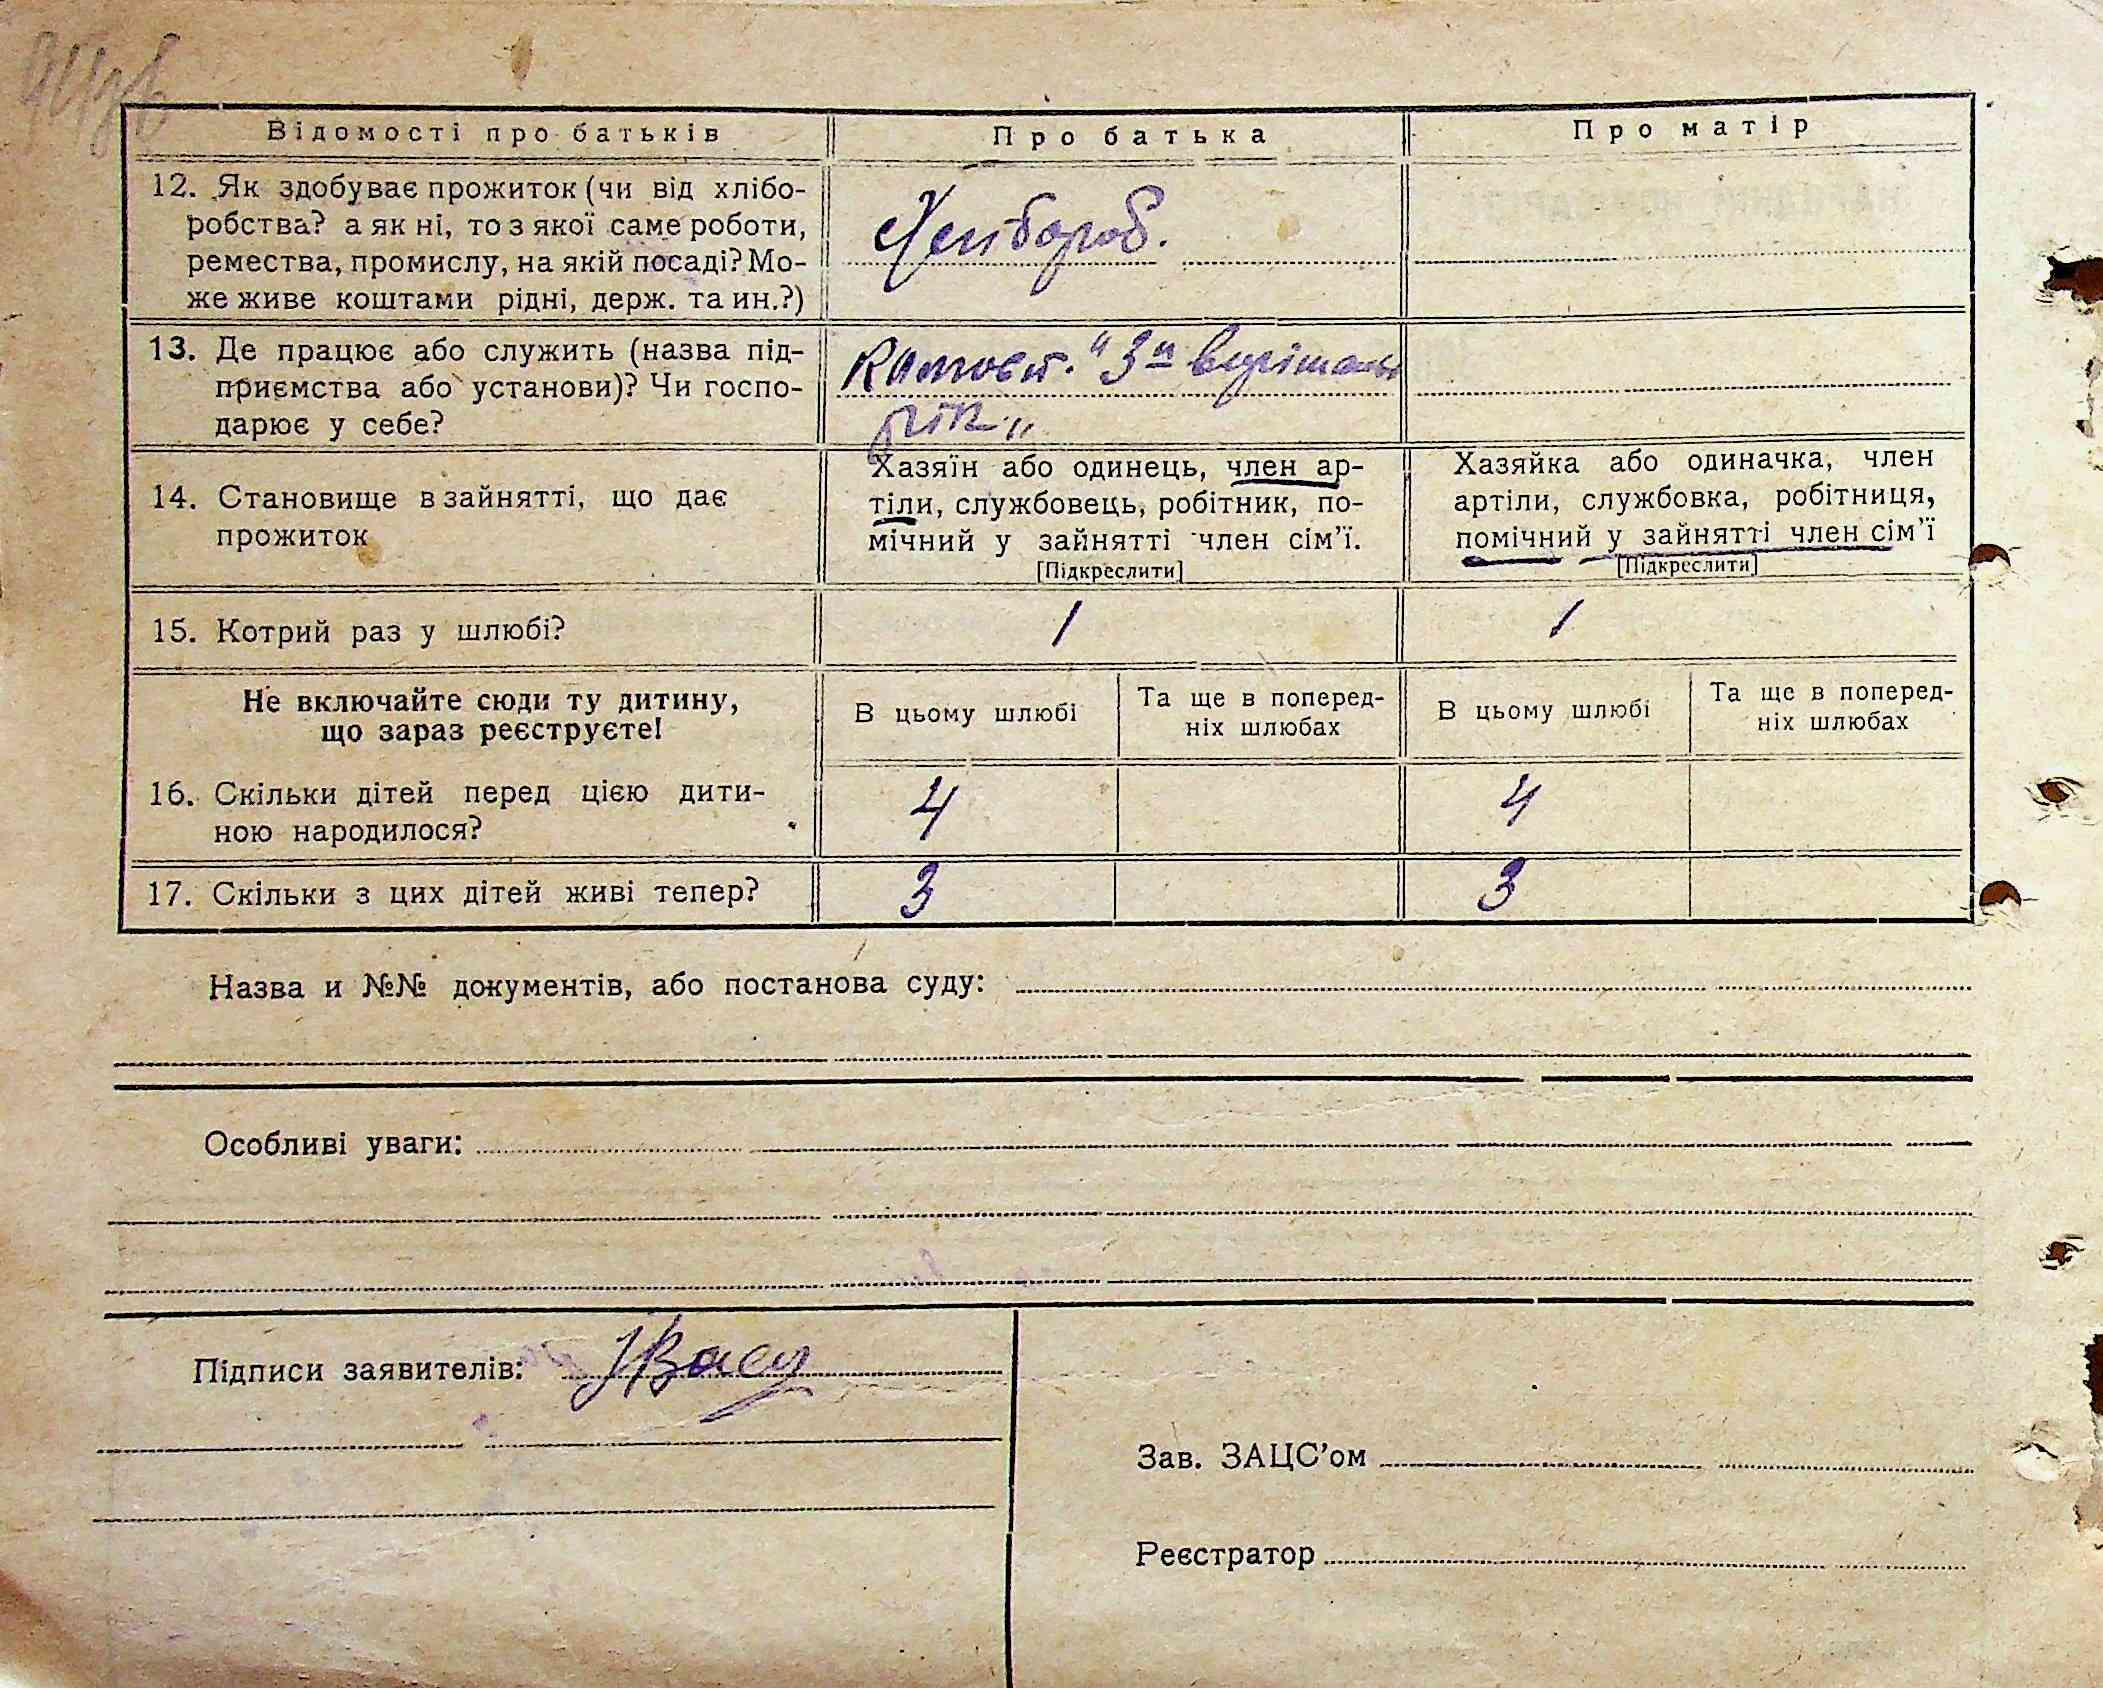 Відомості про батьків
Про батька
Про матір
12. Як здобуває прожиток (чи від хлібо-
робства? а як ні, то з якої саме роботи,
ремества, промислу, на якій посаді? Мо-
же живе коштами рідні, держ. та ин.?)
Хлібороб.
13. Де працює або служить (назва під-
приємства або установи)? Чи госпо-
дарює у себе?
"3й вирішальн
рік"
14. Становище в зайнятті, що дає
прожиток
Хазяїн або одинець, член ар-
тіли, службовець, робітник, по-
мічний у зайнятті член сім'ї.
[Підкреслити]
Хазяйка або одиначка, член
артіли, службовка, робітниця,
помічний у зайнятті член сім'ї
[Підкреслити]
15. Котрий раз у шлюбі?
1
1
Не включайте сюди ту дитину,
що зараз реєструєте!
В цьому шлюбі
Та ще в поперед-
ніх шлюбах
В цьому шлюбі
Та ще в поперед-
ніх шлюбах
16. Скільки дітей перед цією дити-
ною народилося?
4
4
17. Скільки з цих дітей живі тепер?
3
3
Назва и №№ документів, або постанова суду:
Особливі уваги:
Підписи заявителів:
Зав. ЗАЦС'ом
Реєстратор